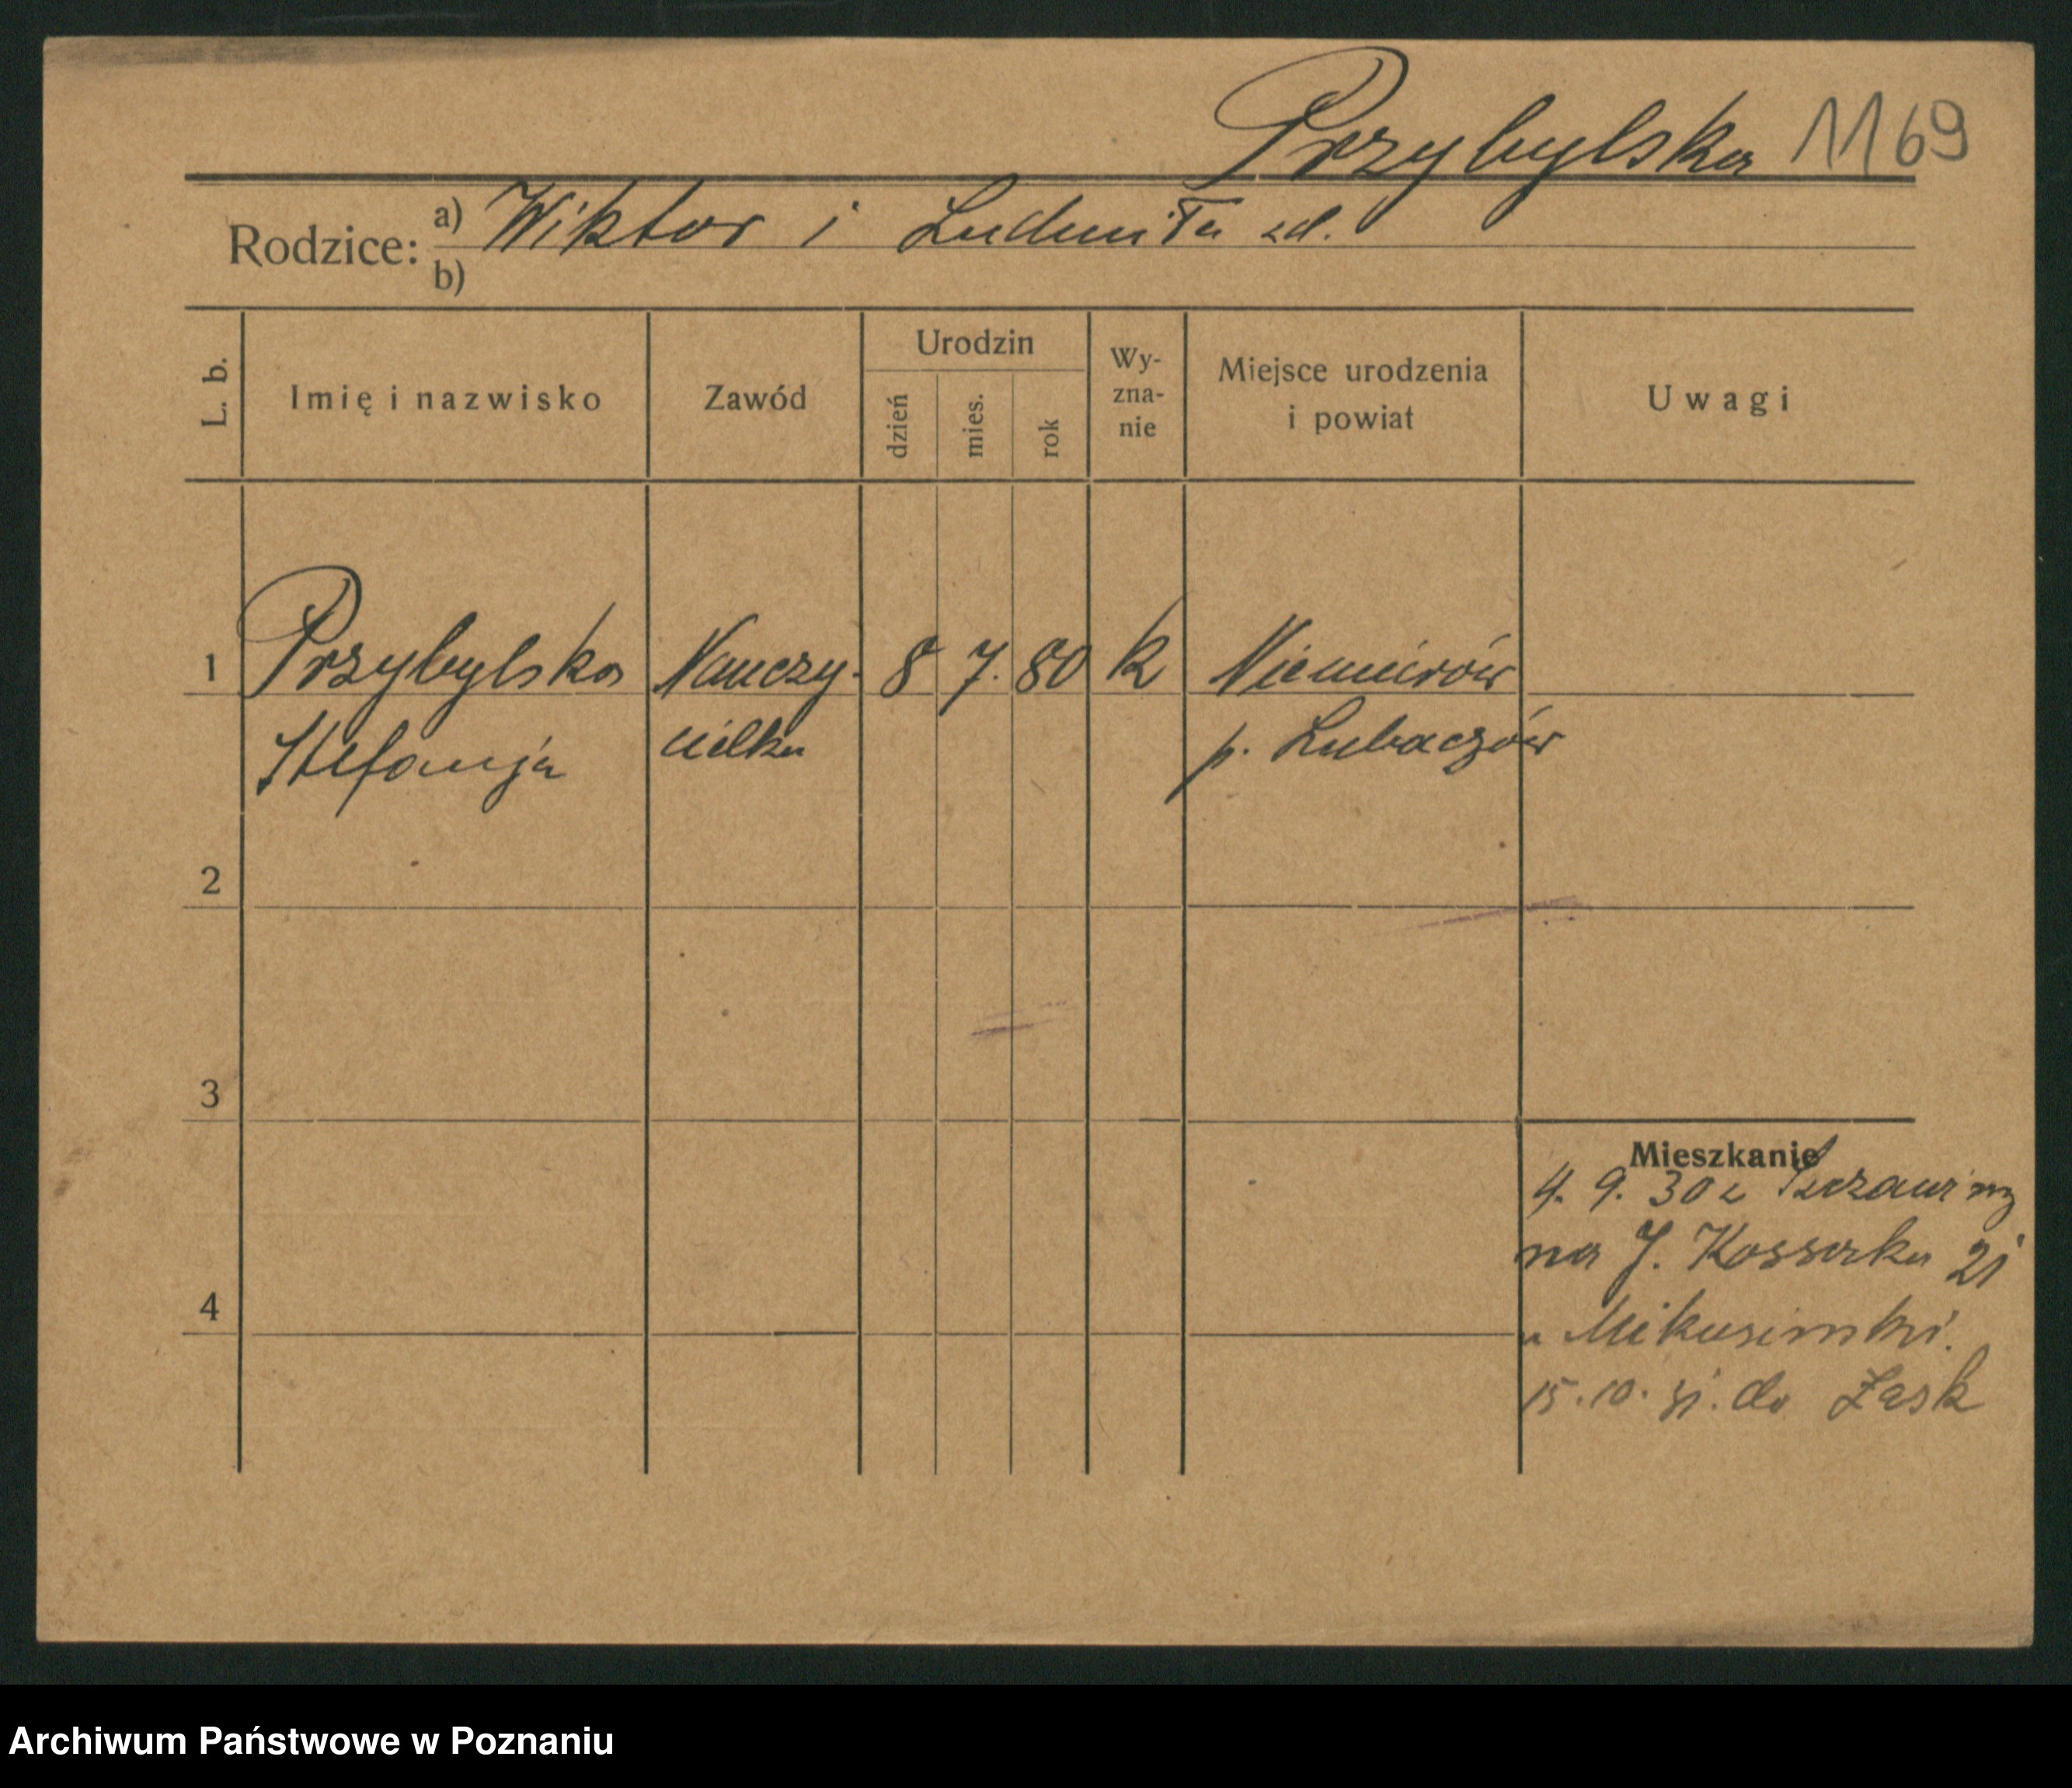 Przybylska 1169
Rodzice: a) Wiktor i Ludmiła zd.
b)
L. b. Imię i nazwisko Zawód Urodzin dzień mies. rok Wy-zna-nie Miejsce urodzenia i powiat Uwagi
1 Przybylska Nauczy- 8 7. 80 k Niemirów
Stefanja cielka p. Lubaczów
2
3
Mieszkanie
4. 9. 30 z
na J. Kossaka 21
4
u
15.10.31. do Łask
Archiwum Państwowe w Poznaniu